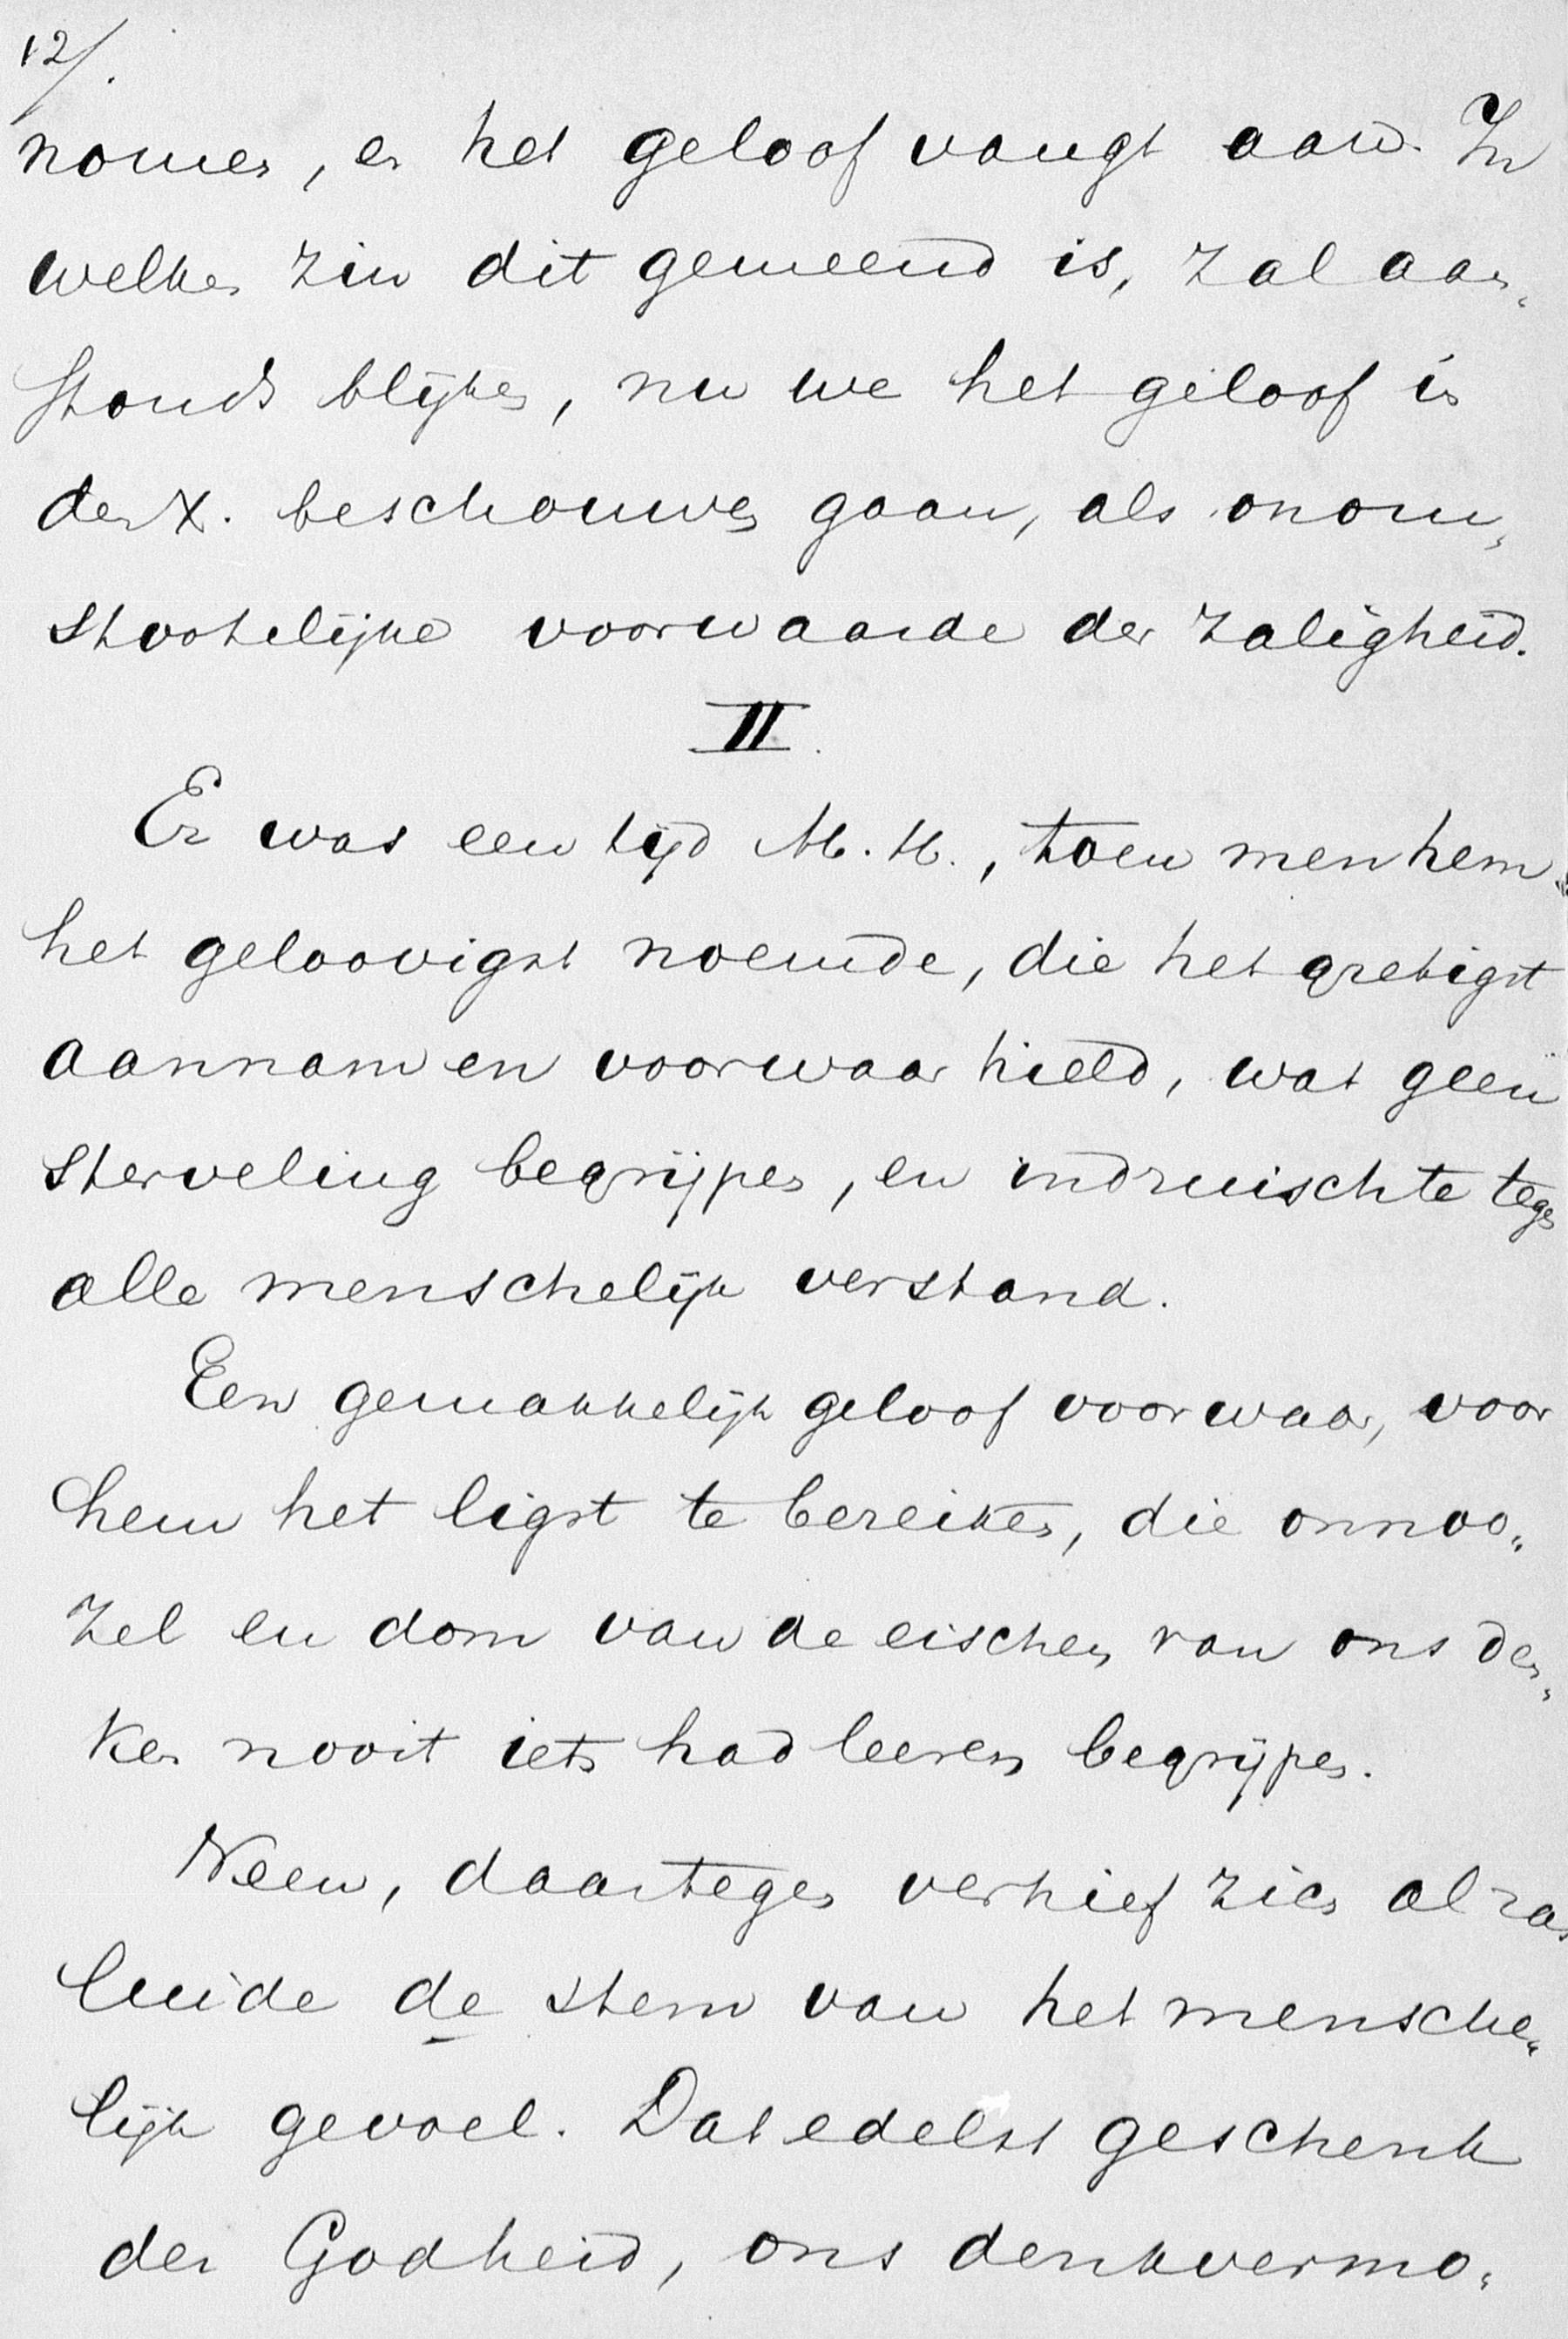 12/.
nomen, en het geloof vangt aan. In
welken zin dit gemeend is, zal aan„
stonds blijken, nu we het geloof in
den X. beschouwen gaan, als onom„
stootelijke voorwaarde der zaligheid.
II.
Er was een tijd M. H., toen men hem
het geloovigst noemde, die het gretigst
aannam en voorwaar hield, wat geen
sterveling begrijpen, en indruischte tegen
alle menschelijk verstand.
Een gemakkelijk geloof voorwaar, voor
hem het ligst te bereiken, die onnoo„
zel en dom van de eischen van ons den„
ken nooit iets had leeren begrijpen.
Neen, daartegen verhief zich alras
luide de stem van het mensche„
lijk gevoel. Dat edelst geschenk
der Godheid, ons denkvermo„